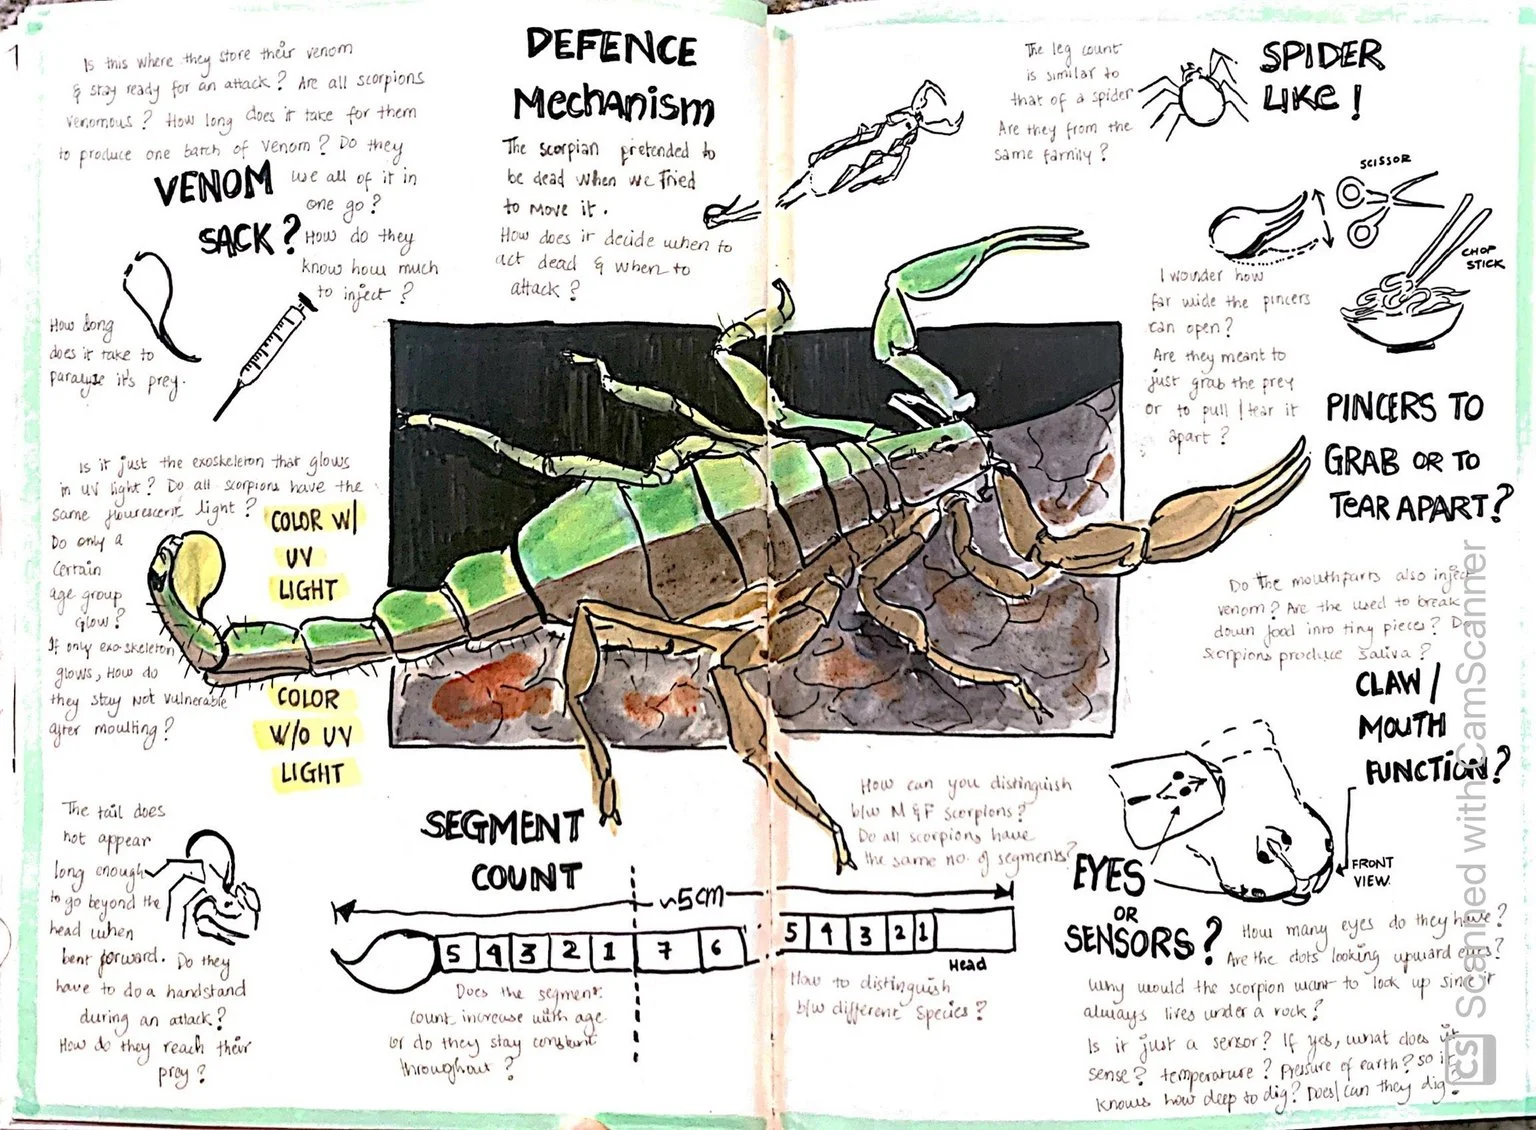 1
Is this where they store their venom
& stay ready for an attack? Are all scorpions
venomous? How long does it take for them
to produce one batch of venom? Do they
use all of it in
one go?
How do they
know how much
to inject?
VENOM
SACK?
How long
does it take to
paralyze it's prey.
DEFENCE
Mechanism
The scorpian pretended to
be dead when we tried
to move it.
How does it decide when to
act dead & when to
attack?
The leg count
is similar to
that of a spider
Are they from the
same family?
SPIDER
LIKE!
SCISSOR
CHOP
STICK
I wonder how
far wide the pincers
can open?
Are they meant to
just grab the prey
or to pull / tear it
apart?
PINCERS TO
GRAB OR TO
TEAR APART?
Is it just the exoskeleton that glows
in UV light? Do all scorpions have the
same flourescent light?
Do only a
certain
age group
glow?
If only exo-skeleton
glows, How do
they stay not vulnerable
after moulting?
COLOR W/
UV
LIGHT
COLOR
W/O UV
LIGHT
Do the mouthparts also inject
venom? Are the used to break
down food into tiny pieces? Do
scorpions produce saliva?
CLAW/
MOUTH
FUNCTION?
FRONT
VIEW.
The tail does
not appear
long enough
to go beyond the
head when
bent forward. Do they
have to do a handstand
during an attack?
How do they reach their
prey?
SEGMENT
COUNT
~5cm
5 4 3 2 1 7 6 5 4 3 2 1
Head
Does the segment
count increase with age
or do they stay constant
throughout?
How can you distinguish
b/w M & F scorpions?
Do all scorpions have
the same no. of segments?
How to distinguish
b/w different species?
EYES
OR
SENSORS?
How many eyes do they have?
Are the dots looking upward eyes?
Why would the scorpion want to look up since it
always lives under a rock?
Is it just a sensor? If yes, what does it
sense? temperature? Pressure of earth? so it
knows how deep to dig? Does/can they dig?
CS Scanned with CamScanner